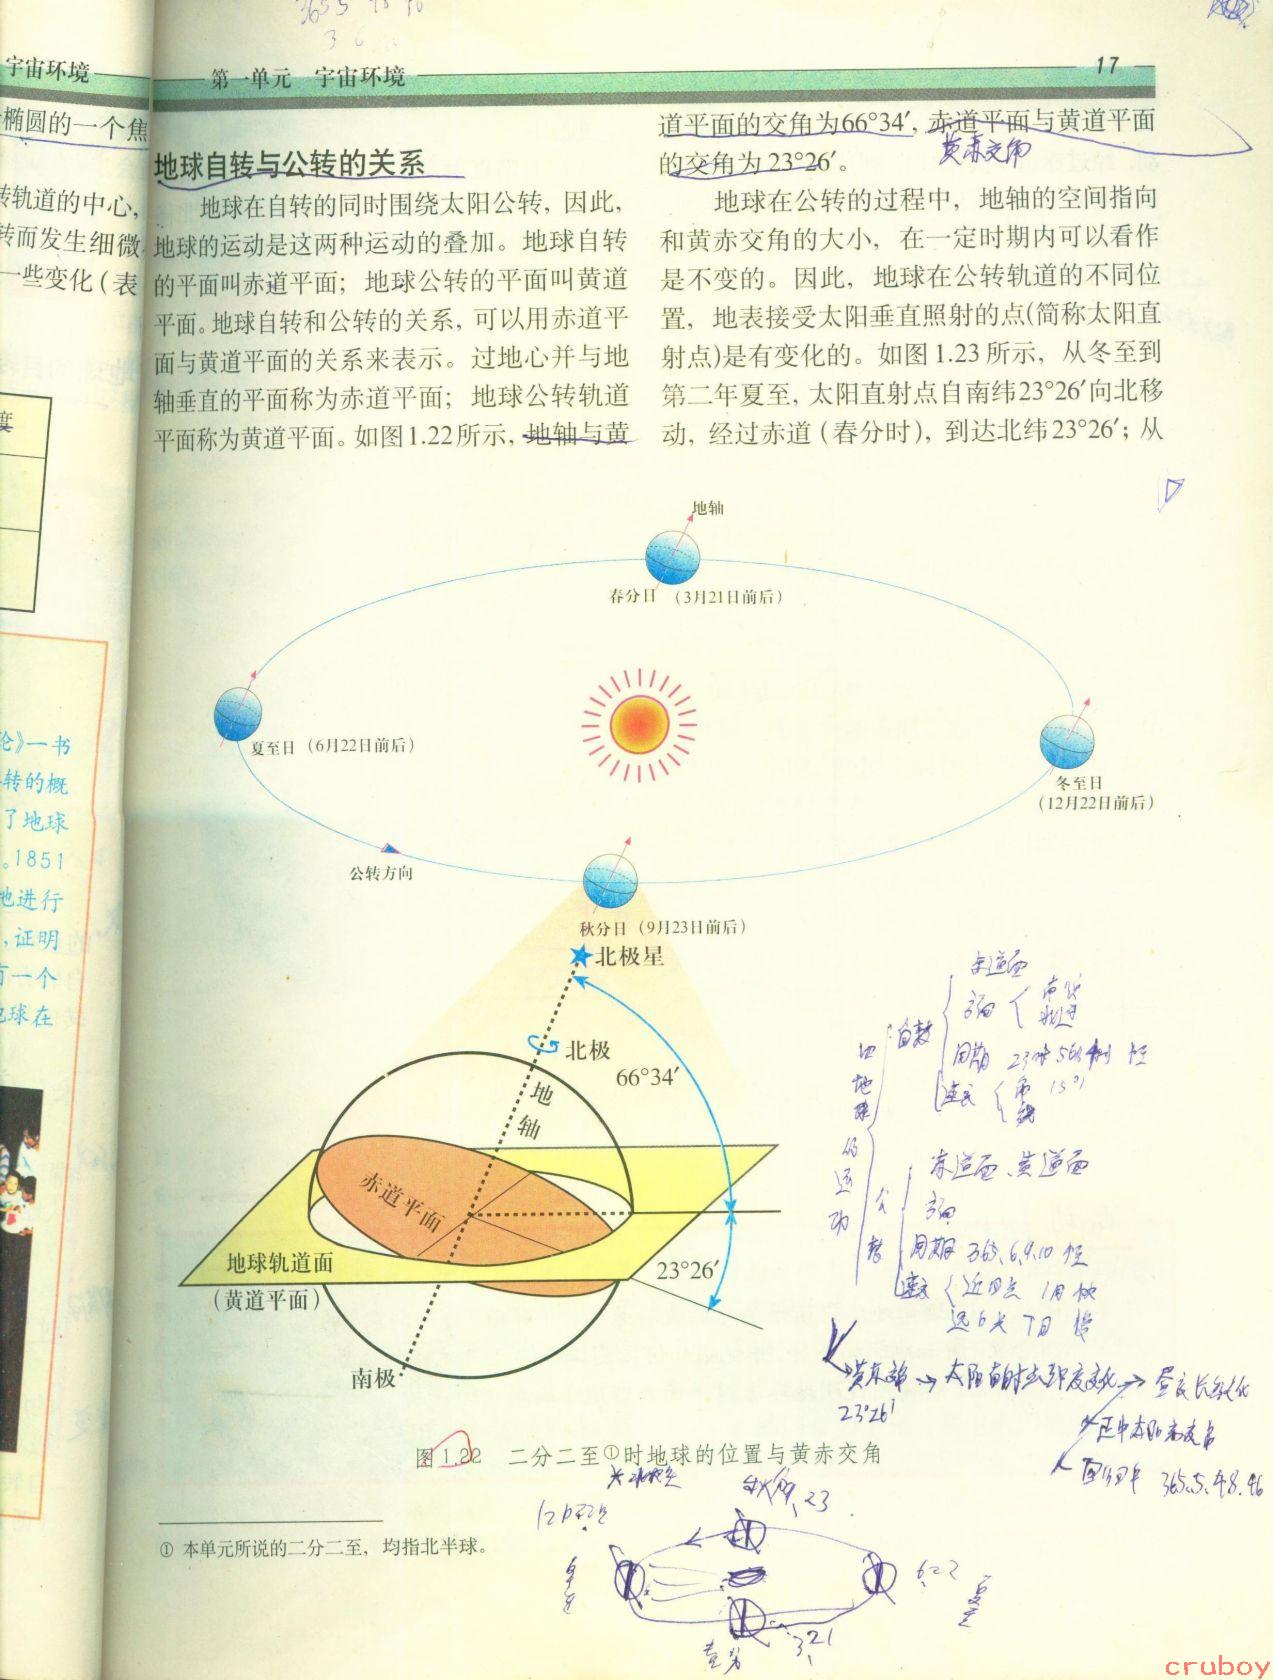 宇宙环境
椭圆的一个焦
转轨道的中心,
转而发生细微
一些变化(表
度
论》一书
转的概
了地球
。1851
地进行
,证明
有一个
地球在
第一单元 宇宙环境
17
地球自转与公转的关系
地球在自转的同时围绕太阳公转, 因此,
地球的运动是这两种运动的叠加。地球自转
的平面叫赤道平面; 地球公转的平面叫黄道
平面。地球自转和公转的关系, 可以用赤道平
面与黄道平面的关系来表示。过地心并与地
轴垂直的平面称为赤道平面; 地球公转轨道
平面称为黄道平面。如图1.22所示, 地轴与黄
道平面的交角为66°34′, 赤道平面与黄道平面
黄赤交角
的交角为23°26′。
地球在公转的过程中, 地轴的空间指向
和黄赤交角的大小, 在一定时期内可以看作
是不变的。因此, 地球在公转轨道的不同位
置, 地表接受太阳垂直照射的点(简称太阳直
射点)是有变化的。如图1.23所示, 从冬至到
第二年夏至, 太阳直射点自南纬23°26′向北移
动, 经过赤道(春分时), 到达北纬23°26′; 从
地轴
春分日 (3月21日前后)
夏至日 (6月22日前后)
冬至日
(12月22日前后)
公转方向
秋分日 (9月23日前后)
北极星
北极
66°34′
地
轴
赤道平面
地球轨道面
(黄道平面)
23°26′
南极
赤道面
自转
周期 23时56分 恒
速度
15°
地球的运动
公转
赤道面、黄道面
周期 365.6.9.10 恒
速度 近日点 1月 快
远日点 7月 慢
黄赤交角 → 太阳直射点纬度变化 → 昼夜长短变化
23°26′
正午太阳高度
回归年 365.5.48.46
图1.22 二分二至①时地球的位置与黄赤交角
① 本单元所说的二分二至, 均指北半球。
秋分 9.23
6.22
夏至
3.21
春分
cruboy